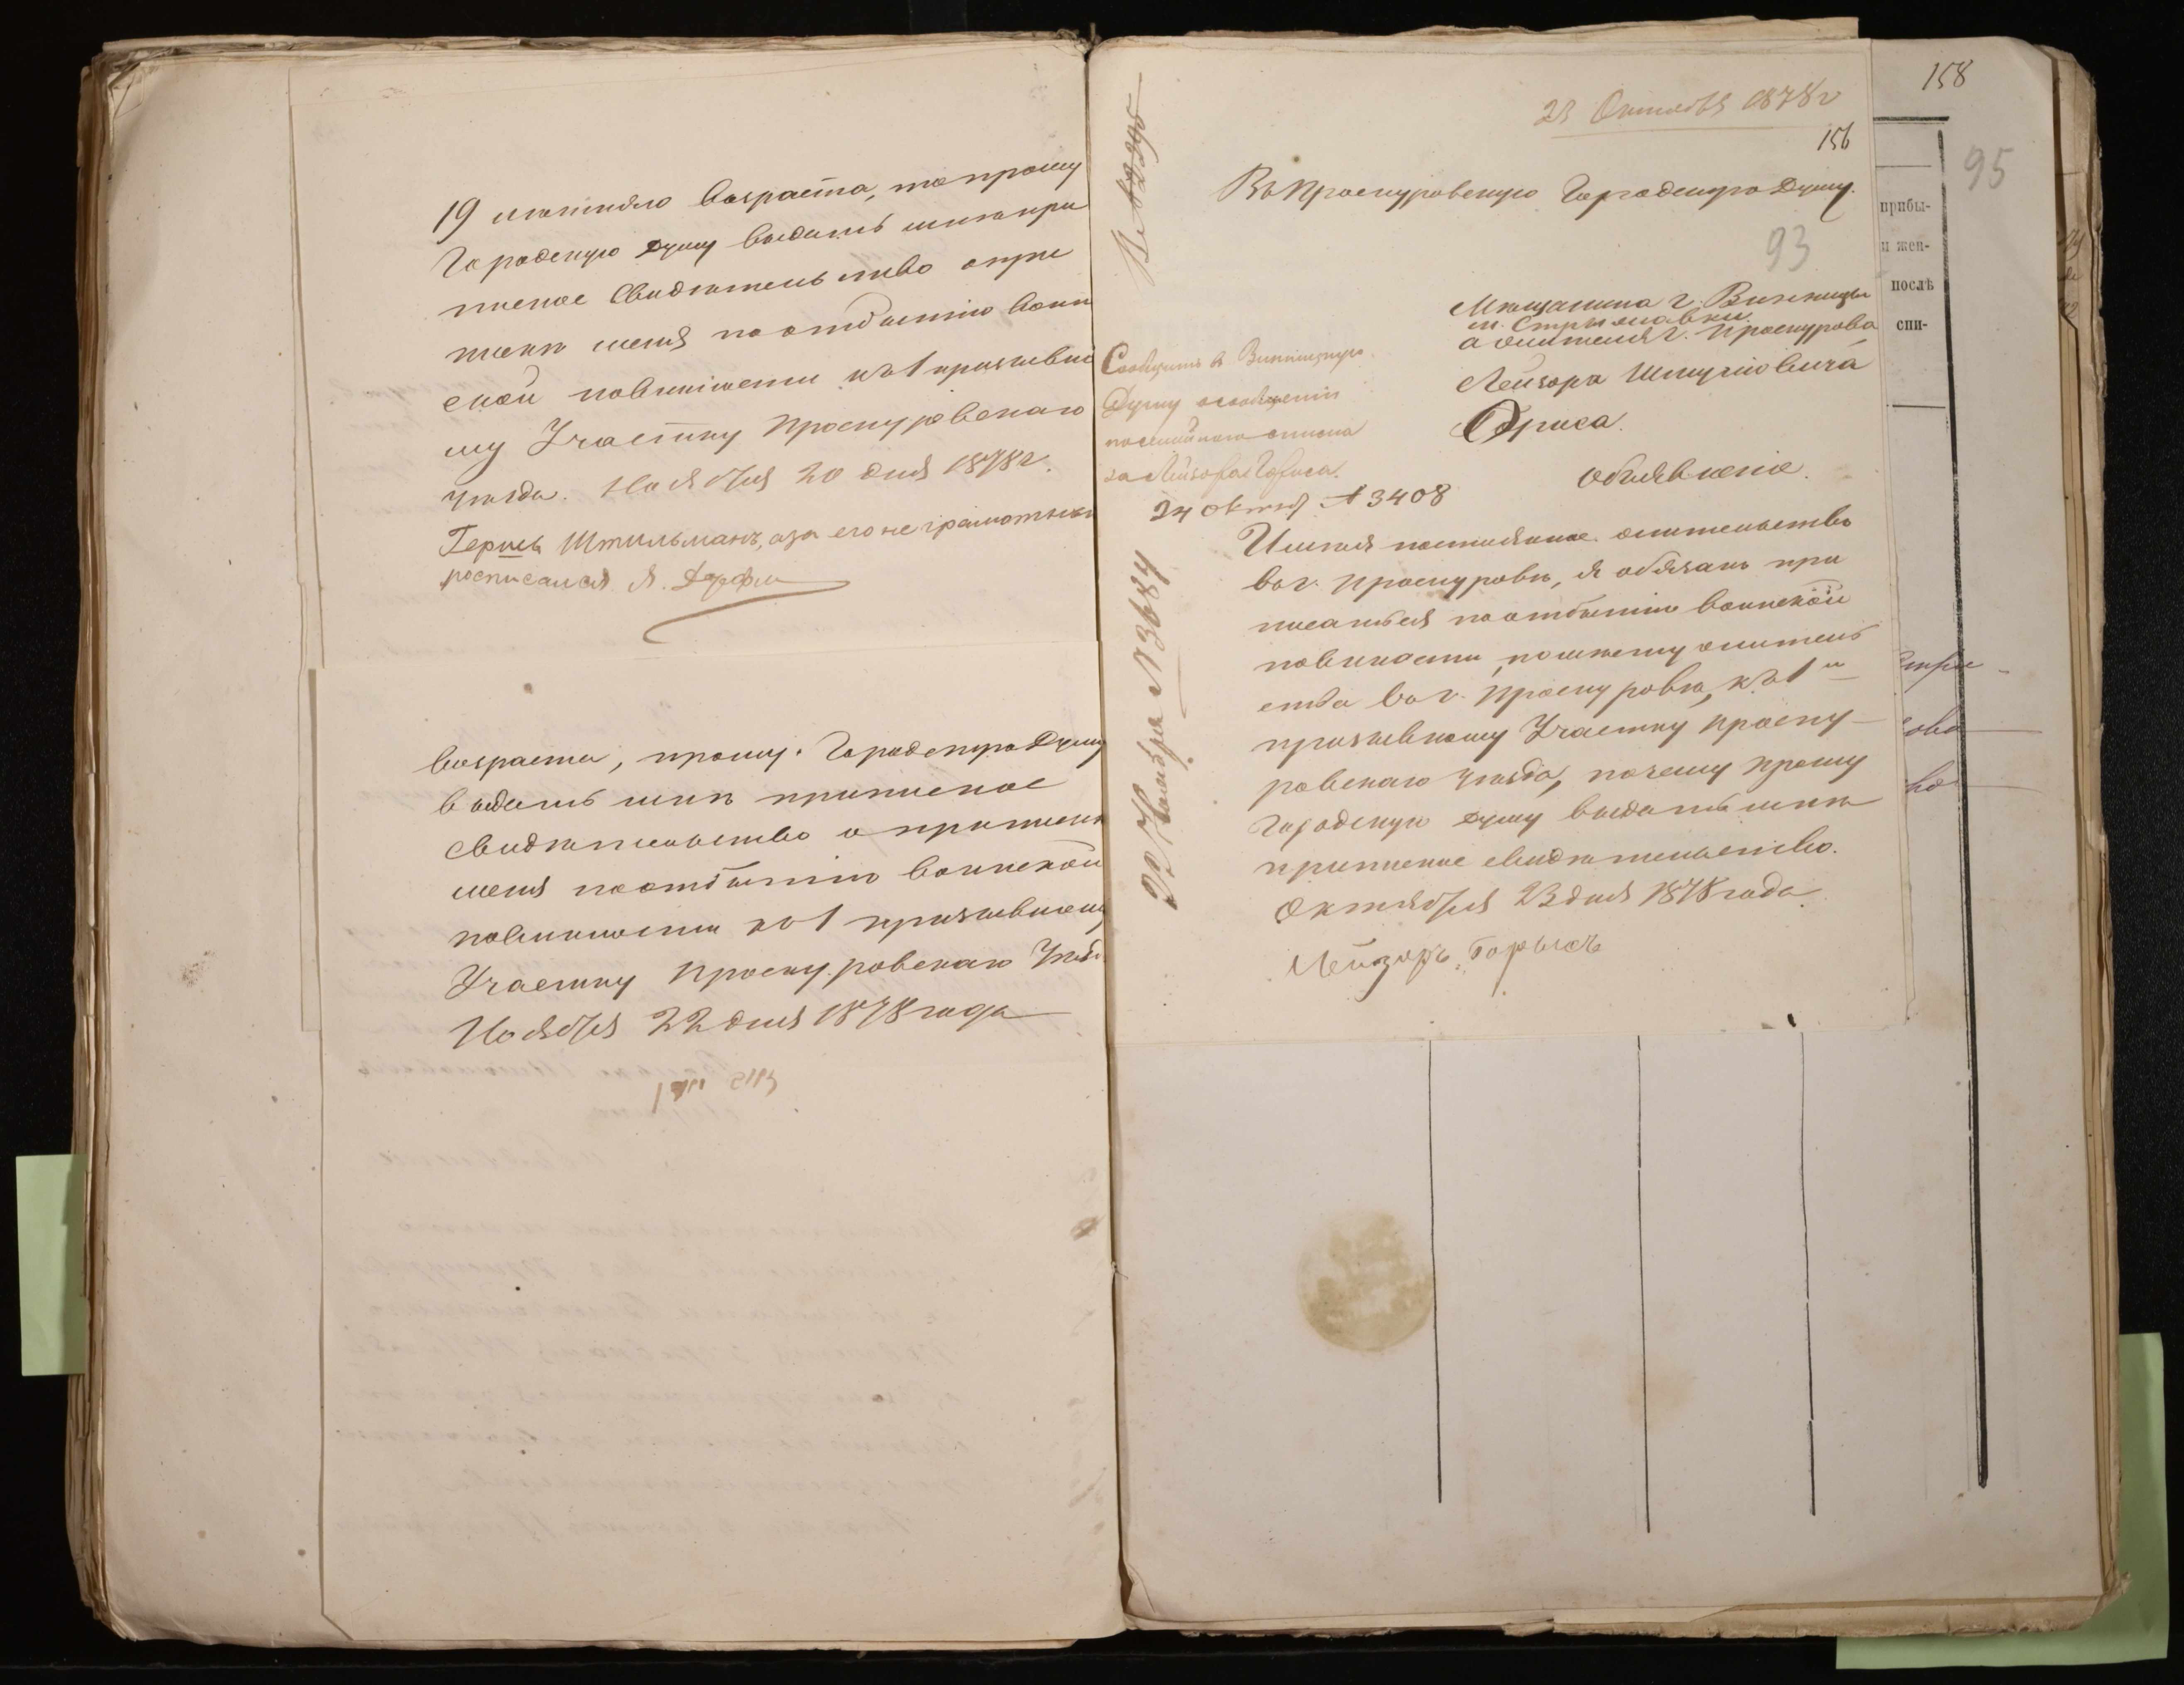 19 лѣтняго возраста, то прошу
Городскую Думу выдать мнѣ при
писное свидѣтельство о при
пискѣ меня по отбытію воин
ской повинности къ 1 призывно
му Участку Проскуровскаго
уѣзда. Ноября 20 дня 1878 г.
Гершъ Штильманъ, а за его неграмотныхъ
росписался Я.
возраста, прошу Городскую Думу
выдать мнѣ приписное
свидѣтельство о припискѣ
меня по отбытію воинской
повинности къ 1 призывному
Участку Проскуровскаго Уѣзд.
Ноября 22 дня 1878 года
158
95
23 Октября 1878 г
156
Въ Проскуровскую Городскую Думу.
93
Мѣщанина г. Винницы
м. Стрыжавки
а жителя г. Проскурова
Лейзора Шмулiовича
Ориса.
Объявленіе.
Сообщить въ Винницкую
Думу о сообщеніи
посемейнаго списка
за Лейзора Гориса.
24 октяб № 3408
22 Ноября № 3684
Имѣя постоянное жительство
въ г. Проскуровѣ, я обязанъ при
писаться по отбытію воинской
повинности, по моему житель
ства въ г. Проскуровѣ, къ 1 му
призывному Участку Проску-
ровскаго уѣзда, почему прошу
Городскую Думу выдать мнѣ
приписное свидѣтельство.
Октября 23 дня 1878 года.
Лейзоръ Горысъ
прибы-
и жен-
послѣ
спи-